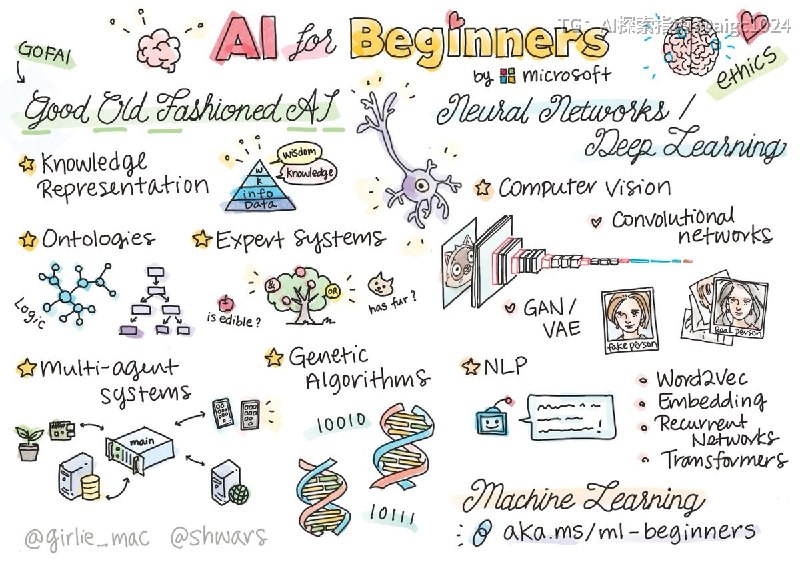 TG: AI探索指南 @aigc1024
AI for Beginners
by microsoft
GOFAI
ethics
Good Old Fashioned AI
Knowledge
Representation
wisdom
knowledge
w
k
info
Data
Ontologies
Logic
Expert Systems
&
OR
is edible?
has fur?
Multi-agent
systems
main
Genetic
Algorithms
10010
10111
Neural Networks /
Deep Learning
Computer Vision
Convolutional
networks
GAN/
VAE
fake person
real person
NLP
Word2Vec
Embedding
Recurrent
Networks
Transformers
Machine Learning
aka.ms/ml-beginners
@girlie_mac @shwars